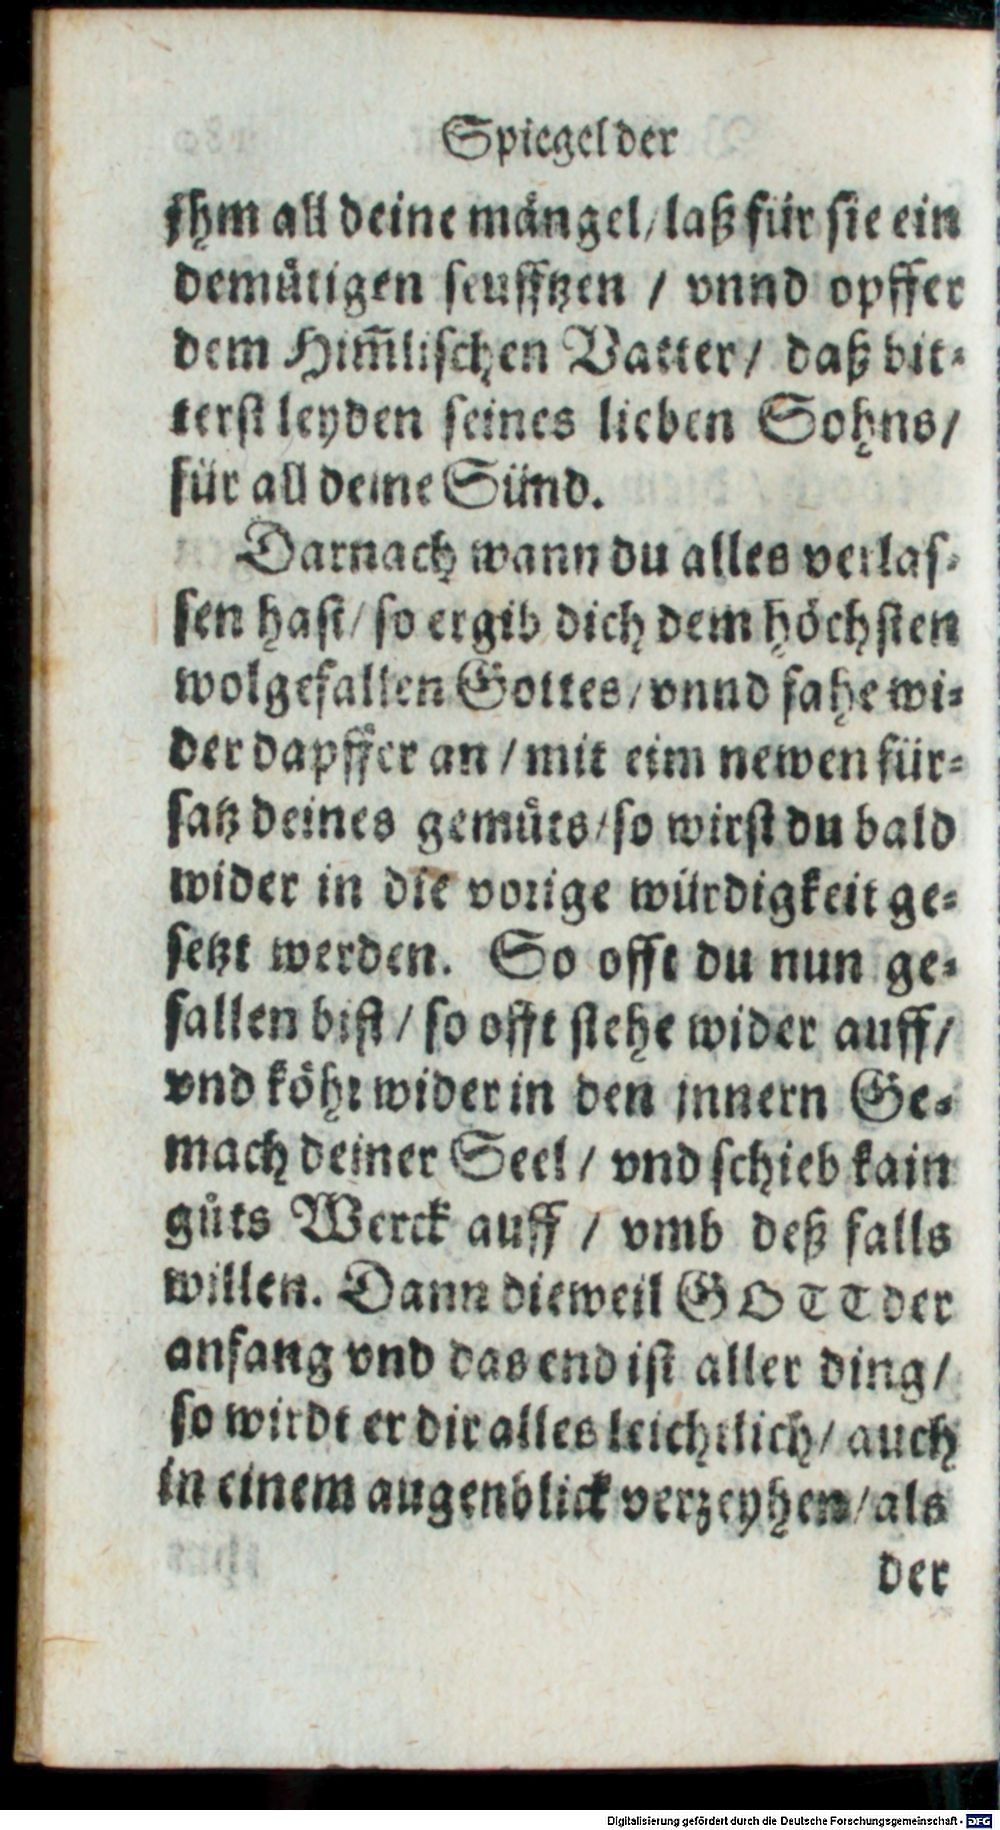 Spiegel der
jhm all deine mångel/ laß für sie ein
demůtigen seufftzen / vnnd opffer
dem Him̃lischen Vatter/ daß bit-
terst leyden seines lieben Sohns/
für all deine Sünd.
Darnach wann du alles verlas-
sen hast/ so ergib dich dem höchsten
wolgefallen Gottes/ vnnd fahe wi-
der dapffer an / mit eim newen für-
satz deines gemůts/ so wirst du bald
wider in die vorige würdigkeit ge-
setzt werden. So offt du nun ge-
fallen bist / so offt stehe wider auff/
vnd köhr wider in den jnnern Ge-
mach deiner Seel / vnd schieb kain
gůts Werck auff / vmb deß falls
willen. Dann dieweil GOTT der
anfang vnd das end ist aller ding/
so wirdt er dir alles leichtlich/ auch
in einem augenblick verzeyhen/ als
der
Digitalisierung gefördert durch die Deutsche Forschungsgemeinschaft - DFG